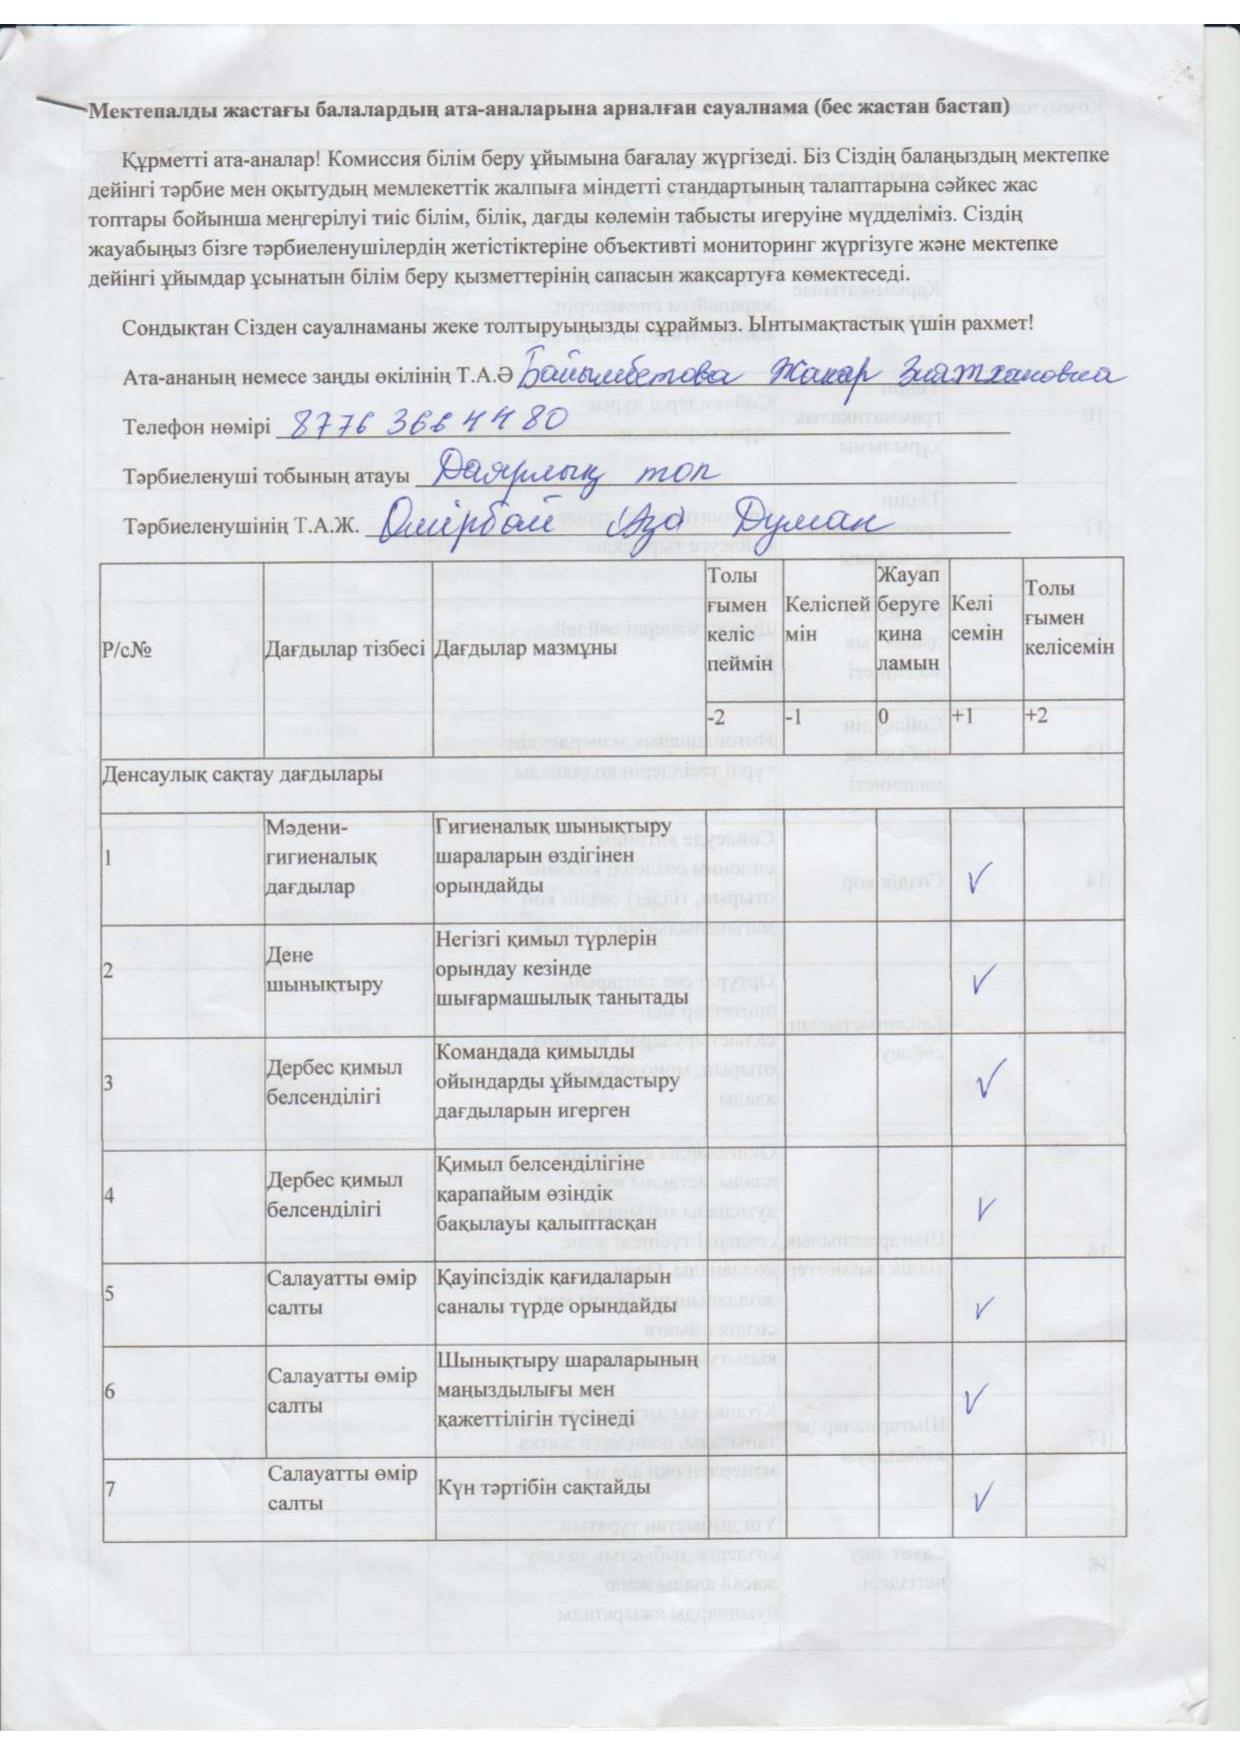 Мектепалды жастағы балалардың ата-аналарына арналған сауалнама (бес жастан бастап)
Құрметті ата-аналар! Комиссия білім беру ұйымына бағалау жүргізеді. Біз Сіздің балаңыздың мектепке
дейінгі тәрбие мен оқытудың мемлекеттік жалпыға міндетті стандартының талаптарына сәйкес жас
топтары бойынша меңгерілуі тиіс білім, білік, дағды көлемін табысты игеруіне мүдделіміз. Сіздің
жауабыңыз бізге тәрбиеленушілердің жетістіктеріне объективті мониторинг жүргізуге және мектепке
дейінгі ұйымдар ұсынатын білім беру қызметтерінің сапасын жақсартуға көмектеседі.
Сондықтан Сізден сауалнаманы жеке толтыруыңызды сұраймыз. Ынтымақтастық үшін рахмет!
Ата-ананың немесе заңды өкілінің Т.А.Ә Байымбетова Жанар Зиятхановна
Телефон нөмірі 8776 366 44 80
Тәрбиеленуші тобының атауы Даярлық топ
Тәрбиеленушінің Т.А.Ж. Өмірбай Думан
Р/с№ Дағдылар тізбесі Дағдылар мазмұны
Толы
ғымен
келіс
пеймін
Келіспей
мін
Жауап
беруге
қина
ламын
Келі
семін
Толы
ғымен
келісемін
-2 -1 0 +1 +2
Денсаулық сақтау дағдылары
1
Мәдени-
гигиеналық
дағдылар
Гигиеналық шынықтыру
шараларын өздігінен
орындайды
2
Дене
шынықтыру
Негізгі қимыл түрлерін
орындау кезінде
шығармашылық танытады
3
Дербес қимыл
белсенділігі
Командада қимылды
ойындарды ұйымдастыру
дағдыларын игерген
4
Дербес қимыл
белсенділігі
Қимыл белсенділігіне
қарапайым өзіндік
бақылауы қалыптасқан
5
Салауатты өмір
салты
Қауіпсіздік қағидаларын
саналы түрде орындайды
6
Салауатты өмір
салты
Шынықтыру шараларының
маңыздылығы мен
қажеттілігін түсінеді
7
Салауатты өмір
салты
Күн тәртібін сақтайды